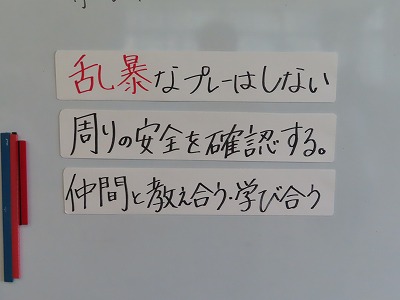 乱暴なプレーはしない
周りの安全を確認する。
仲間と教え合う・学び合う